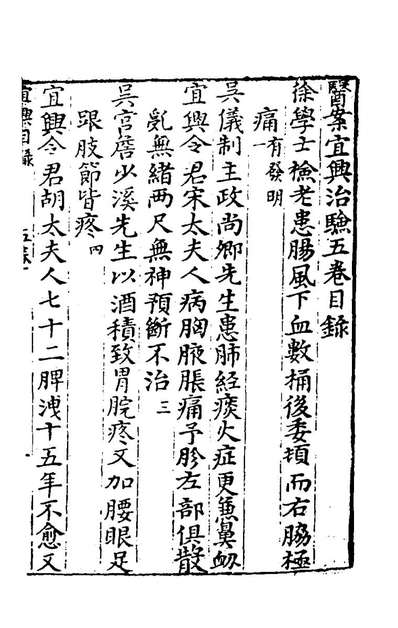 醫案宜興治驗五卷目錄
徐學士檢老患腸風下血數桶後委頓而右脇極
痛有發明一
吳儀制主政尚卿先生患肺經痰火症更兼鼻衂
宜興令君宋太夫人病胸腋脹痛予胗左部俱散
亂無緒兩尺無神預斷不治三
吳官詹少溪先生以酒積致胃脘疼又加腰眼足
跟肢節皆疼四
宜興令君胡太夫人七十二脾洩十五年不愈又
宜興目錄